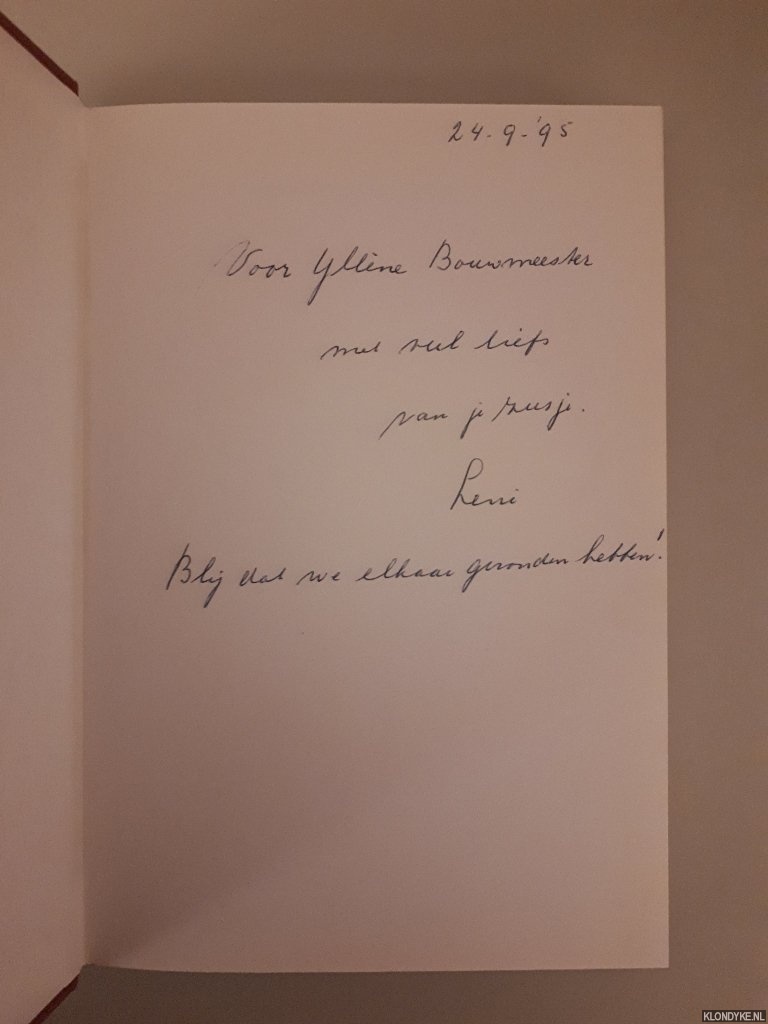 24-9-'95
Voor Yllène Bouwmeester
met veel liefs
van je zusje.
Leni
Blij dat we elkaar gevonden hebben!
KLONDYKE.NL